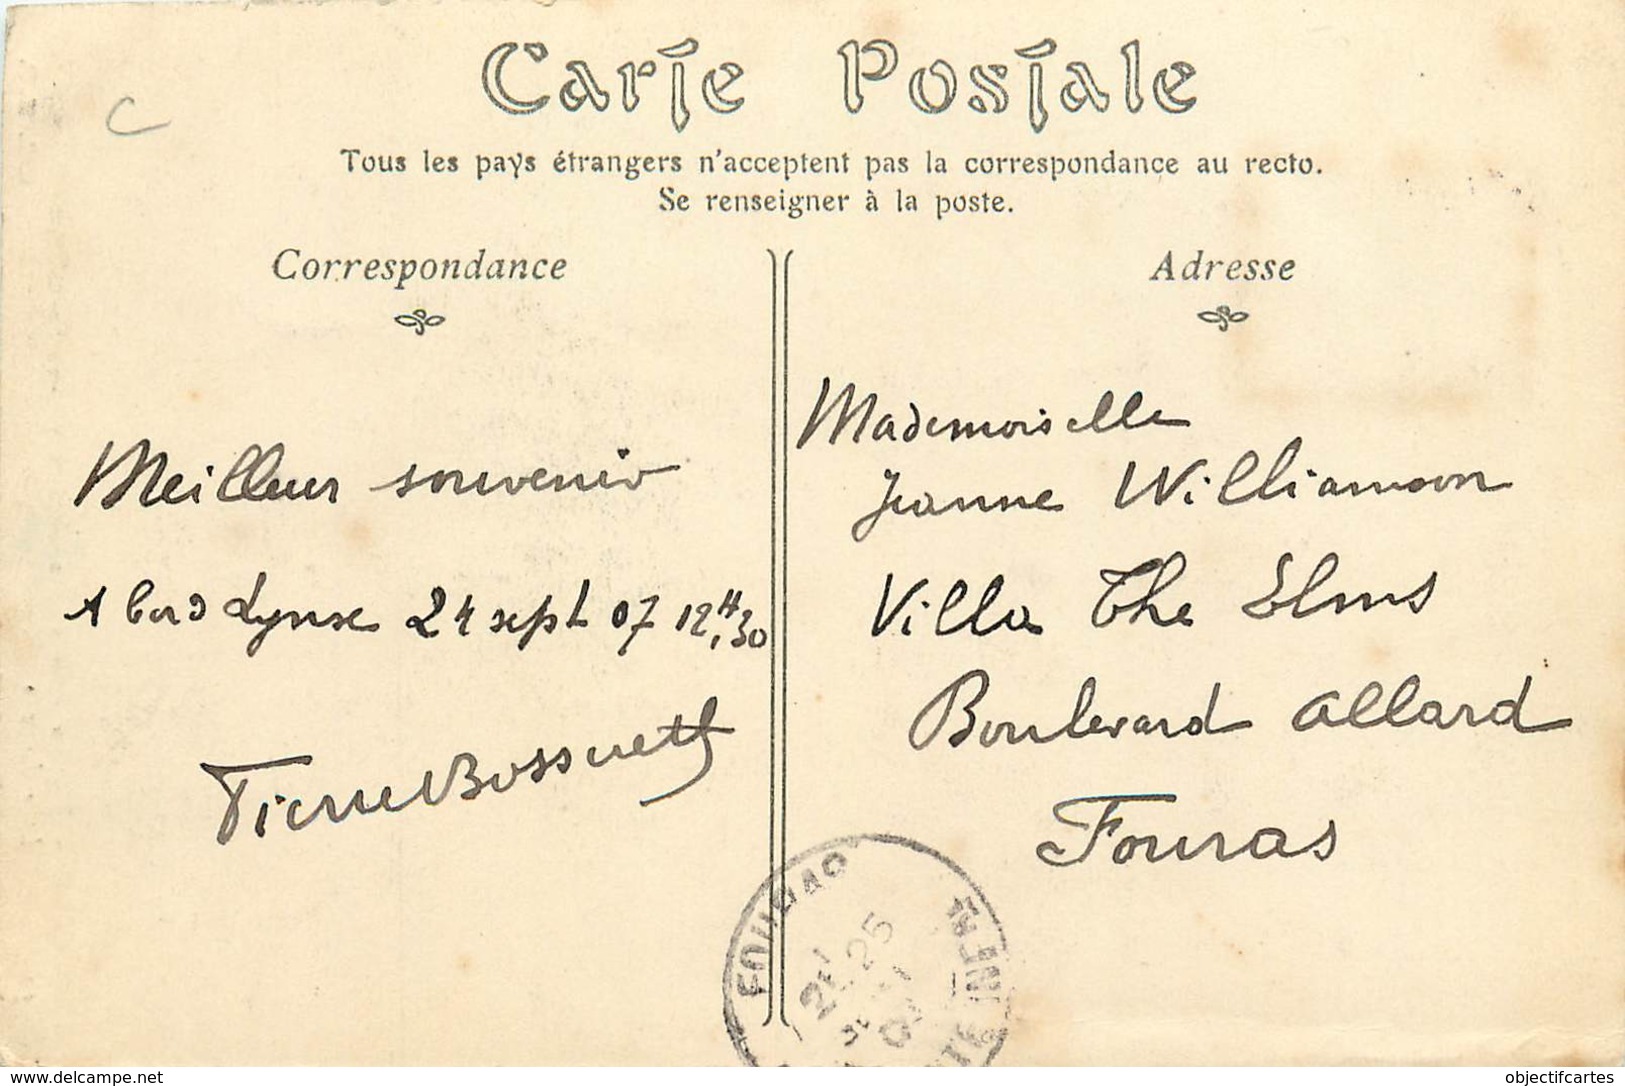 C
Carte Postale
Tous les pays étrangers n'acceptent pas la correspondance au recto.
Se renseigner à la poste.
Correspondance
Meilleur souvenir
A bord Lynse 24 sept 07 12H,30
Pierre Bossueth
Adresse
Mademoiselle
Jeanne Williamson
Villa The Elms
Boulevard Allard
Fouras
FOURAS
25
www.delcampe.net
objectifcartes